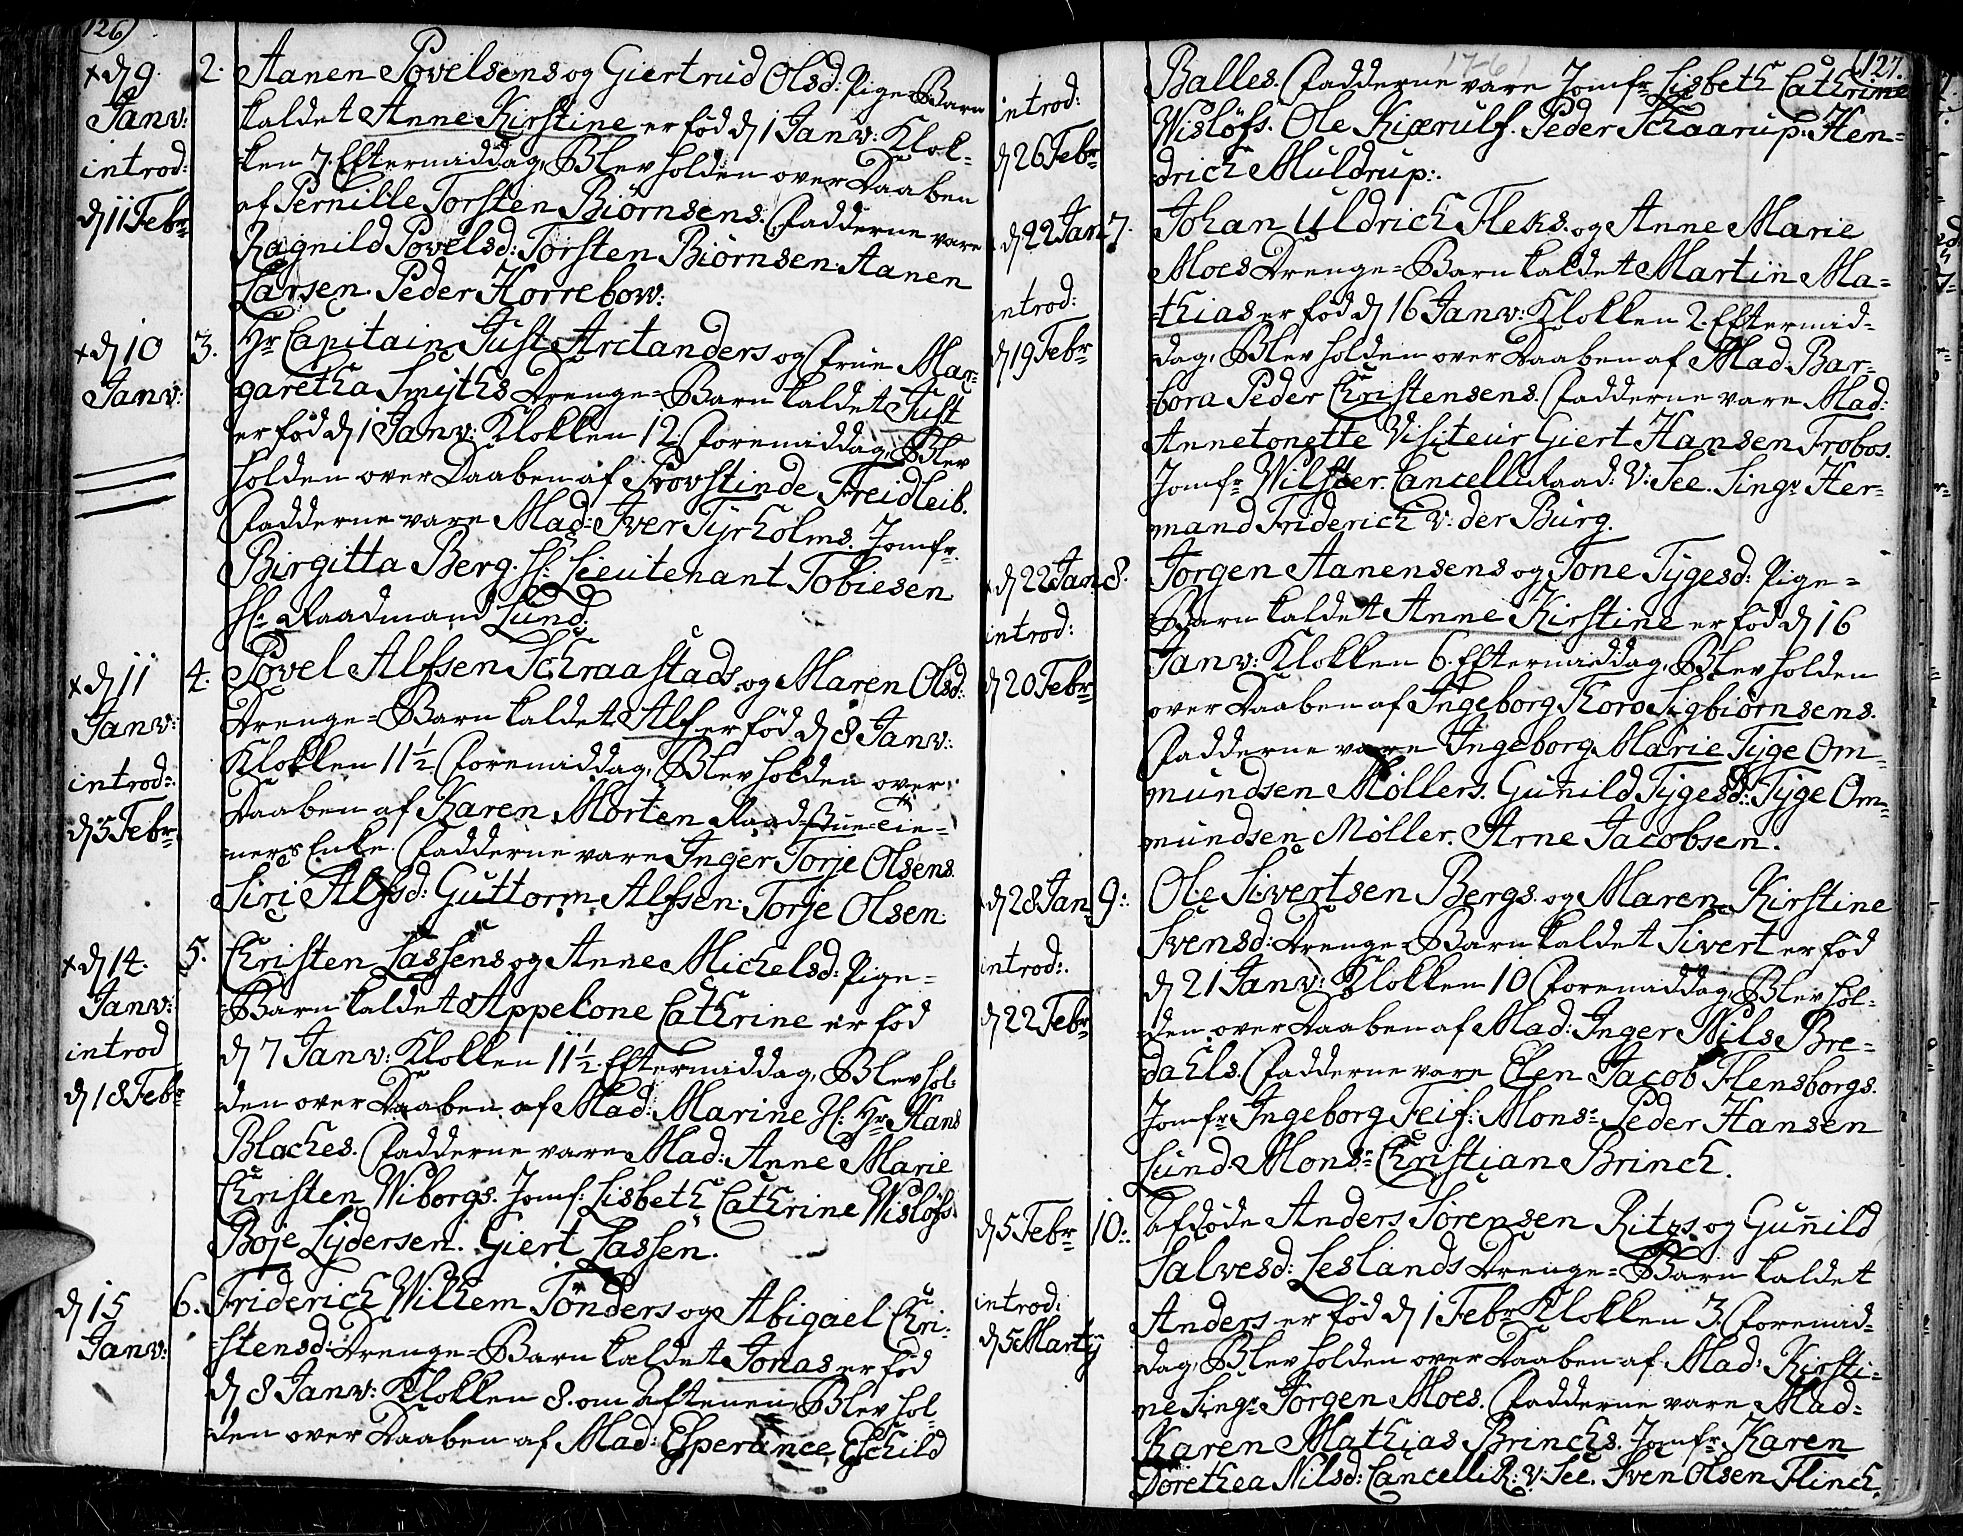 126
x d 9.
Janv:
introd:
d 11 Febr
2. Aanen Povelsens og Giertrud Olsd: Pige-Barn
kaldet Anne Kirstine er fød d 1 Janv: Klok-
ken 7. Eftermiddag, Blev holden over Daaben
af Pernille Torsten Biørnsens. Fadderne vare
Ragnild Povelsd: Torsten Biørnsen. Aanen
Larsen. Peder Horrebow:
x d 10
Janv:
3. Hr Capitain Just Arctanders og Frue Mar-
garetha Smyths Drenge-Barn kaldet Just
er fød d 1 Janv: Klokken 12. Foremiddag, Blev
holden over Daaben af Provstinde Freidleib.
Fadderne vare Mad: Iver Tyrholms. Jomfr
Birgitta Berg. H: Lieutenant Tobiesen
H: Raadmand Lund.
x d 11
Janv:
introd:
d 5 Febr
4. Povel Alfsen Schraastads og Maren Olsd:
Drenge-Barn kaldet Alf er fød d 8 Janv:
Klokken 11½ Foremiddag, Blev holden over
Daaben af Karen Morten Raadstue-Tie-
ners Enke. Fadderne vare Inger Torje Olsens
Siri Alfsd: Guttorm Alfsen. Torje Olsen.
x d 14.
Janv:
introd
d 18 Febr
5. Christen Lassens og Anne Michelsd: Pige-
Barn kaldet Appelone Cathrine er fød
d 7 Janv: Klokken 11½ Eftermiddag, Blev hol-
den over Daaben af Mad: Marine H: Hr Hans
Blaches. Fadderne vare Mad: Anne Marie
Christen Wiborgs. Jomf: Lisbeth Cathrine Wisløfs
Boje Lydersen. Giert Lassen.
d 15
Janv:
6. Friderich Wilhem Tønders og Abigael Chri-
stensd: Drenge-Barn kaldet Jonas er fød
d 8 Janv: Klokken 8. om Aftenen, Blev hol-
den over Daaben af Mad: Esperance Eschild
1761
127.
introd:
d 26 Febr
Balles. Fadderne vare Jomfr Lisbeth Cathrine
Wisløfs. Ole Kiærulf. Peder Schaarup. Hen-
drich Muldrup:.
d 22 Jan
introd:
d 19 Febr
7. Johan Uldrich Fleks. og Anne Marie
Moes Drenge-Barn kaldet Martin Ma-
thias er fød d 16 Janv: Klokken 2. Eftermid-
dag, Blev holden over Daaben af Mad: Bar-
bora Peder Christensens. Fadderne vare Mad:
Annetonette Visiteur Giert Hansen Trobos.
Jomfr Wilster. CancelliRaad: V: See. Singr Her-
mand Friderich v: der Burg.
x d 22 Jan
introd:
d 20 Febr
8. Jørgen Aanensens og Tone Tygesd: Pige-
Barn kaldet Anne Kirstine er fød d 16
Janv: Klokken 6. Eftermiddag, Blev holden
over Daaben af Ingeborg Thoro Sigbiørnsens.
Fadderne vare Ingeborg Marie Tyge Om-
mundsen Møllers. Gunild Tygesd: Tyge Om-
mundsen Møller. Arne Jacobsen.
x d 28 Jan
introd:.
d 22 Febr
9:. Ole Sivertsen Bergs. og Maren Kirstine
Svensd: Drenge-Barn kaldet Sivert er fød
d 21 Janv: Klokken 10 Foremiddag, Blev hol-
den over Daaben af Mad: Inger Nils Bre-
dahls. Fadderne vare Elen Jacob Flensborgs.
Jomfr Ingeborg Feif: Monsr Peder Hansen
Lund. Monsr Christian Brinch.
d 5 Febr
introd:
d 5 Martij
10:. Afdøde Anders Sørensen Ritzs. og Gunild
Salvesd: Leslands Drenge-Barn kaldet
Anders er fød d 1 Febr Klokken 3. Foremid-
dag, Blev holden over Daaben af Mad: Kirsti-
ne Singr Jørgen Moes. Fadderne vare Mad-
Karen Mathias Brinchs. Jomfr Karen
Dorethea Nilsd: CancelliR: v: See. Sven Olsen Flinch.